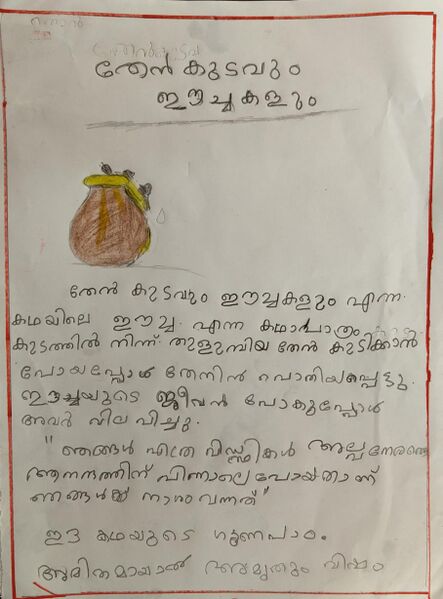 തേൻകുടവും
തേൻ കുടവും
ഈച്ചകളും
തേൻ കുടവും ഈച്ചകളും എന്ന
കഥയിലെ ഈച്ച എന്ന കഥാപാത്രം
കുടത്തിൽ നിന്ന് തുളുമ്പിയ തേൻ കുടിക്കാൻ
പോയപ്പോൾ തേനിൻ പൊതിയപ്പെട്ടു.
ഈച്ചയുടെ ജീവൻ പോകുപ്പോൾ
അവർ വിലപിച്ചു.
"ഞങ്ങൾ എത്ര വിഡ്ഢികൾ അല്പനേരത്തെ
ആനന്ദത്തിന് പിന്നാലെ പോയതാണ്
ഞങ്ങൾക്ക് നാശം വന്നത്"
ഈ കഥയുടെ ഗുണപാഠം.
അമിതമായാൽ അമൃതും വിഷം